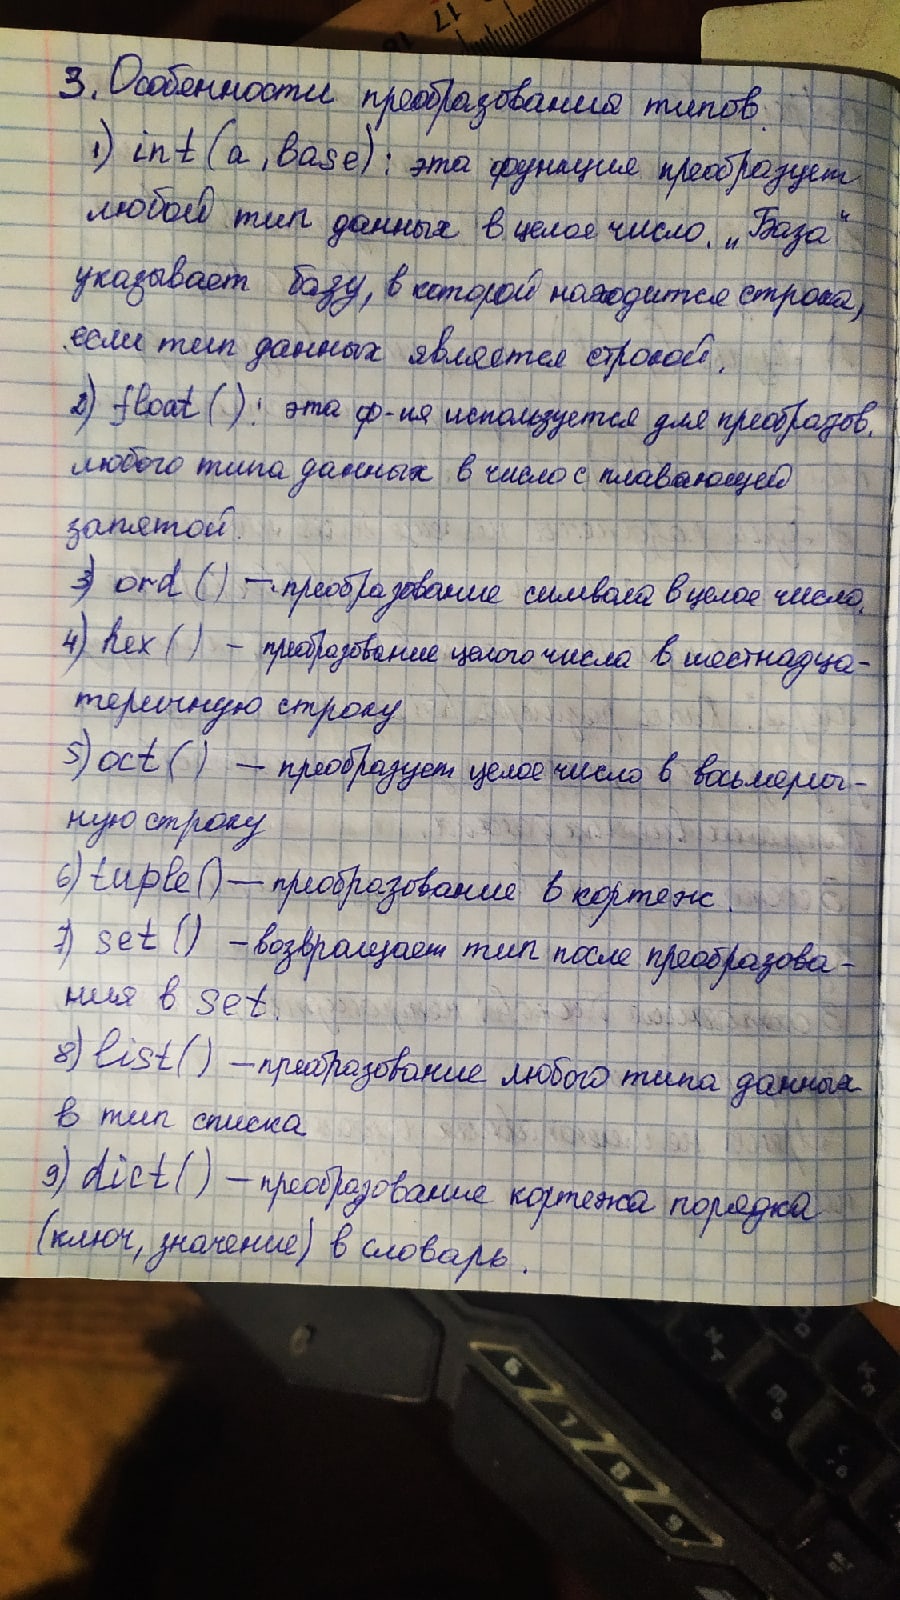 17
18
3. Особенности преобразования типов.
1) int(a, base): эта функция преобразует
любой тип данных в целое число. „База"
указывает базу, в которой находится строка,
если тип данных является строкой.
2) float(): эта ф-ия используется для преобразов.
любого типа данных в число с плавающей
запятой.
3) ord() — преобразование символа в целое число.
4) hex() – преобразование целого числа в шестнадца-
теричную строку
5) oct() — преобразует целое число в восьмерич-
ную строку
6) tuple() — преобразование в кортеж.
7) set() – возвращает тип после преобразова-
ния в set.
8) list() — преобразование любого типа данных
в тип списка
9) dict() — преобразование кортежа порядка
(ключ, значение) в словарь.
6 7 8 9